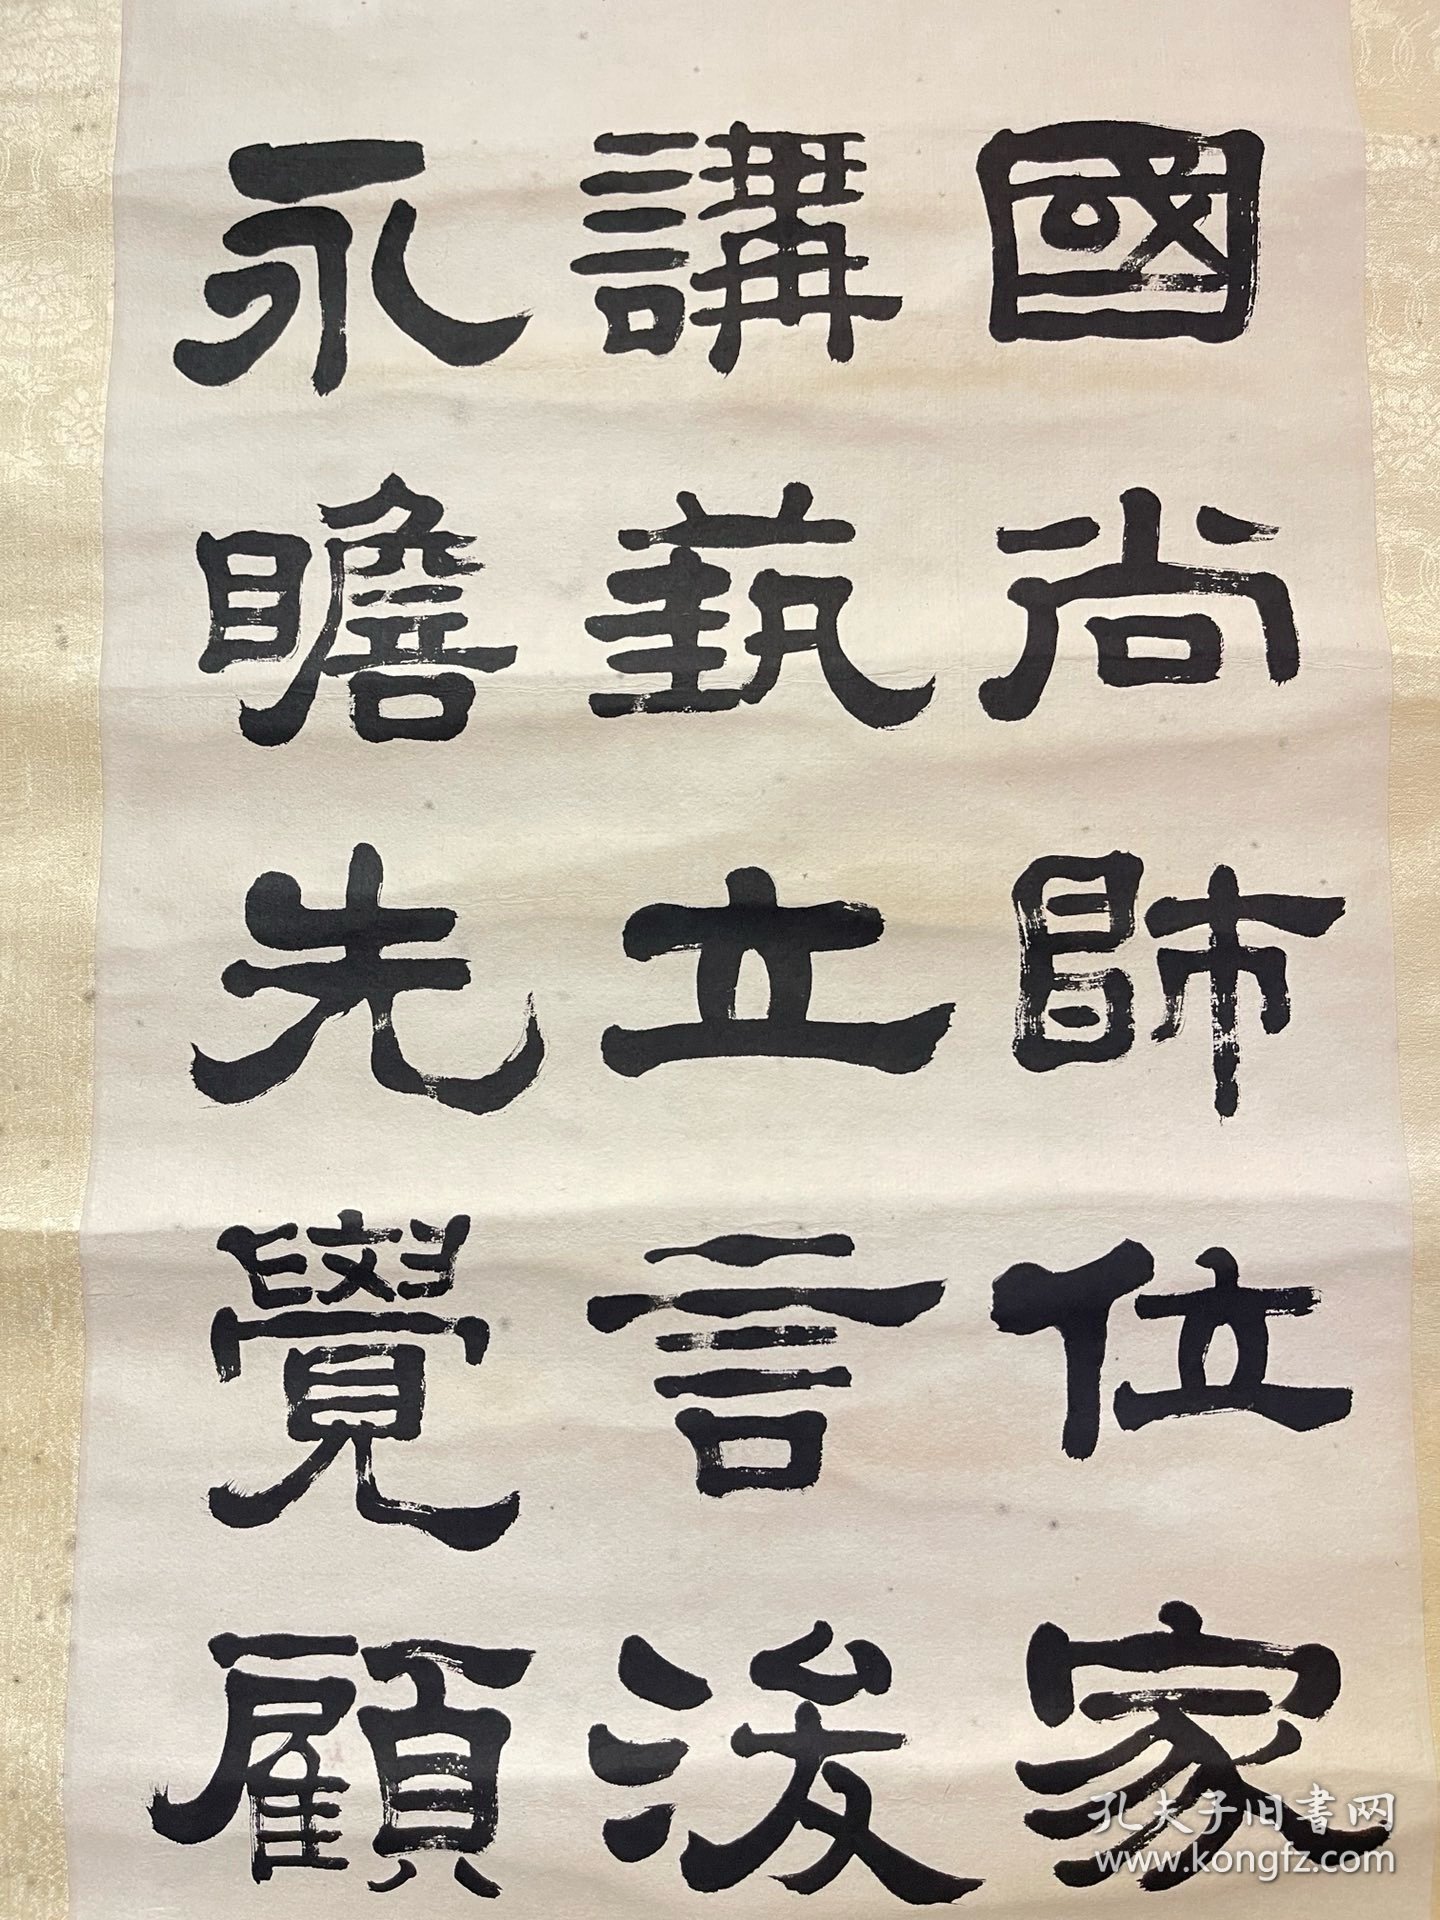 國尚師位家
講藝立言浚
永瞻先覺顧
孔夫子旧書网
www.kongfz.com